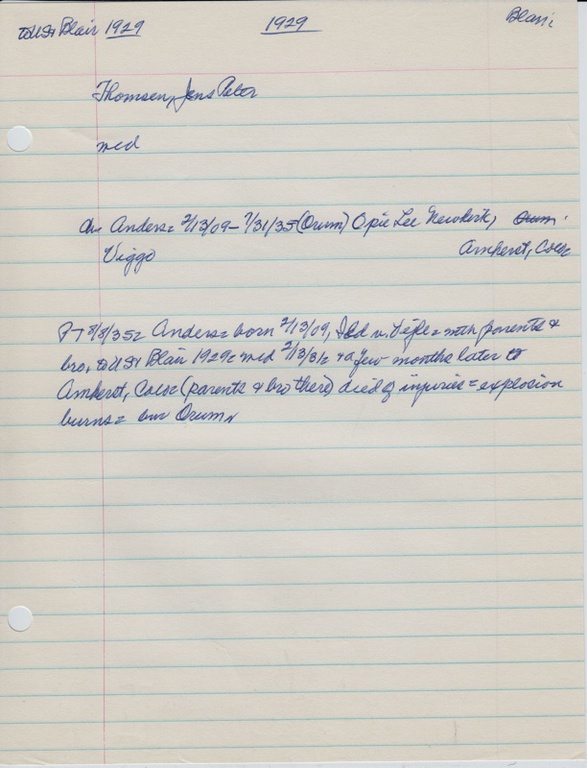 to US Blair 1929 1929 Blair
Thomsen, Jens Peter
med
ch Anders = 2/13/09 - 7/31/35 (Orum) Opie Lee Newkirk,
Viggo Amherst, Colo
PT 8/8/35 = Anders = born 2/13/09, v. Vejle = with parents &
bro, to US Blair 1929 = med 2/13/31 & a few months later to
Amherst, Colo (parents & brother) died of injuries = explosion
burns = bur Orum